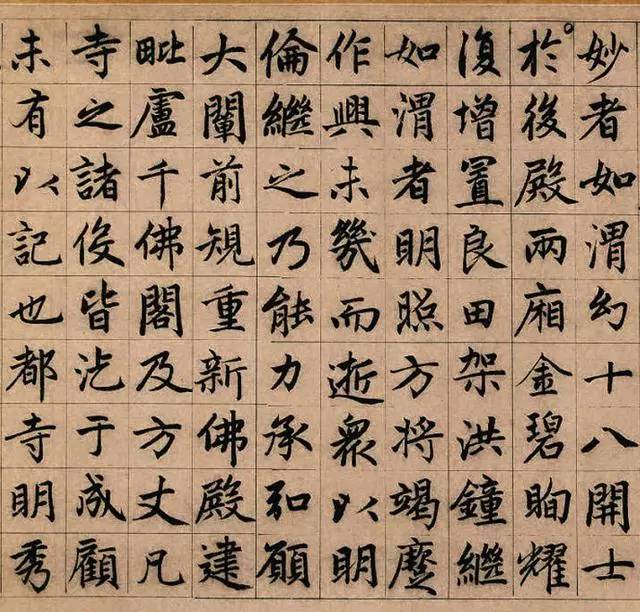 妙者如渭幻十八開士
於後殿兩廂金碧眴耀
復增置良田架洪鐘繼
如渭者明照方將竭蹙
作興未幾而逝衆以明
倫繼之乃能力承和願
大闡前規重新佛殿建
毗盧千佛閣及方丈凡
寺之諸役皆汔于成顧
未有以記也都寺明秀